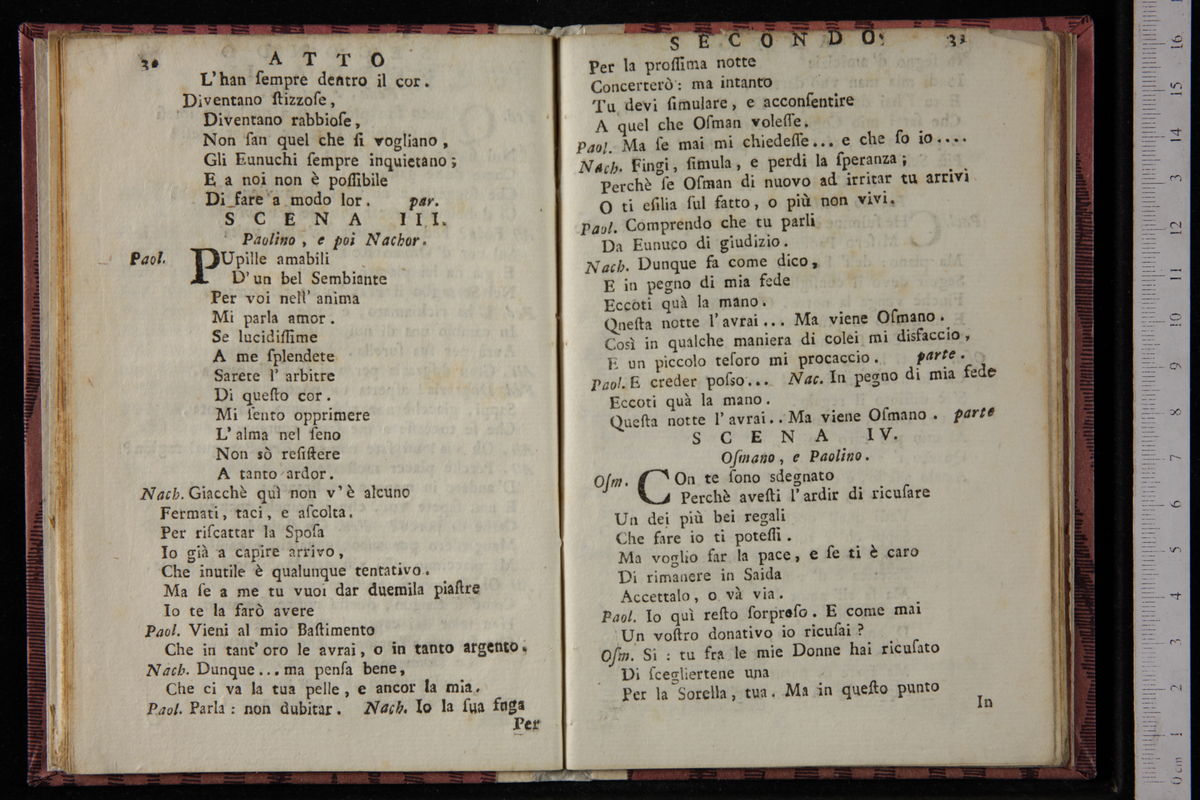 30
A T T O
L'han ſempre dentro il cor.
Diventano ſtizzoſe,
Diventano rabbioſe,
Non ſan quel che ſi vogliano,
Gli Eunuchi ſempre inquietano;
E a noi non è poſſibile
Di fare a modo lor. par.
S C E N A III.
Paolino, e poi Nachor.
Paol. PUpille amabili
D'un bel Sembiante
Per voi nell' anima
Mi parla amor.
Se lucidiſſime
A me ſplendete
Sarete l' arbitre
Di queſto cor.
Mi ſento opprimere
L'alma nel ſeno
Non sò reſiſtere
A tanto ardor.
Nach. Giacchè quì non v'è alcuno
Fermati, taci, e aſcolta.
Per riſcattar la Spoſa
Io già a capire arrivo,
Che inutile è qualunque tentativo.
Ma ſe a me tu vuoi dar duemila piaſtre
Io te la farò avere
Paol. Vieni al mio Baſtimento
Che in tant' oro le avrai, o in tanto argento.
Nach. Dunque... ma penſa bene,
Che ci va la tua pelle, e ancor la mia.
Paol. Parla: non dubitar. Nach. Io la ſua fuga
Per
S E C O N D O. 31
Per la proſſima notte
Concerterò: ma intanto
Tu devi ſimulare, e acconſentire
A quel che Oſman voleſſe.
Paol. Ma ſe mai mi chiedeſſe... e che ſo io....
Nach. Fingi, ſimula, e perdi la ſperanza;
Perchè ſe Oſman di nuovo ad irritar tu arrivi
O ti eſilia ſul fatto, o più non vivi.
Paol. Comprendo che tu parli
Da Eunuco di giudizio.
Nach. Dunque fa come dico,
E in pegno di mia fede
Eccoti quà la mano.
Qneſta notte l'avrai... Ma viene Oſmano.
Così in qualche maniera di colei mi disfaccio,
E un piccolo teſoro mi procaccio. parte.
Paol. E creder poſſo... Nac. In pegno di mia fede
Eccoti quà la mano.
Queſta notte l'avrai.. Ma viene Oſmano. parte
S C E N A IV.
Oſmano, e Paolino.
Oſm. COn te ſono sdegnato
Perchè aveſti l'ardir di ricuſare
Un dei più bei regali
Che fare io ti poteſſi.
Ma voglio far la pace, e ſe ti è caro
Di rimanere in Saida
Accettalo, o và via.
Paol. Io quì reſto ſorpreſo. E come mai
Un voſtro donativo io ricuſai?
Oſm. Si: tu fra le mie Donne hai ricuſato
Di ſcegliertene una
Per la Sorella, tua. Ma in queſto punto
In